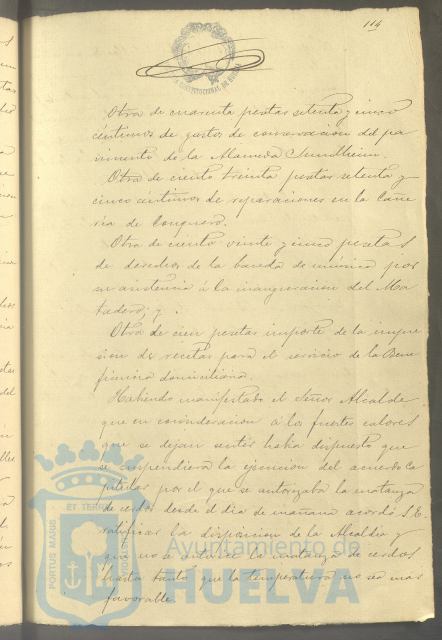 114
Otra de cuarenta pesetas setenta y cinco
céntimos de gastos de conservacion del pa-
vimento de la Alameda Sundheim.
Otra de ciento treinta pesetas setenta y
cinco centimos de reparaciones en la Cañe-
ria de Conquero.
Otra de ciento veinte y cinco pesetas
de derechos de la banda de música por
su asistencia á la inauguracion del Ma-
tadero; y
Otra de cien pesetas importe de la impre-
sion de recetas para el servicio de la Bene-
ficencia domiciliaria.
Habiendo manifestado el Señor Alcalde
que en consideracion á los fuertes calores
que se dejan sentir habia dispuesto que
se suspendiera la ejecucion del acuerdo ca-
pitular por el que se autorizaba la matanza
de cerdos desde el dia de mañana acordó S.E.
ratificar la disposicion de la Alcaldia y
que no se autorice la matanza de cerdos
hasta tanto que la temperatura no sea mas
favorable.
PORTUS MARIS ET TERRAE CUSTODIA
Ayuntamiento de
HUELVA